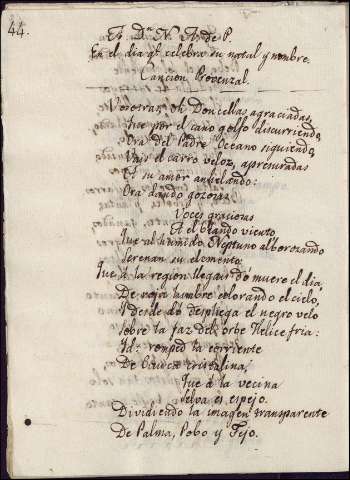 44.
A Dⁿ. N. A. de P.
En el dia qᵉ celebra su natal y nombre.
Cancion Provenzal.
Vosotras, oh Doncellas agraciadas,
Que por el cano golfo discurriendo,
Ora del Padre Oceano siguiendo,
Vais el carro veloz, apresuradas
A su amor anhelando:
Ora dando gozosas
Voces graciosas
Al blando viento
Que al humido Neptuno alborozando
Serenan su elemento:
Que á la region llegan dó muere el dia,
De roja lumbre colorando el cielo,
Y desde dó despliega el negro velo
Sobre la faz del orbe Helice fria:
Id: romped la corriente
De Cauca cristalina,
Que á la vecina
Selva es espejo.
Dividiendo la imagen transparente
De Palma, Pobo y Tejo.